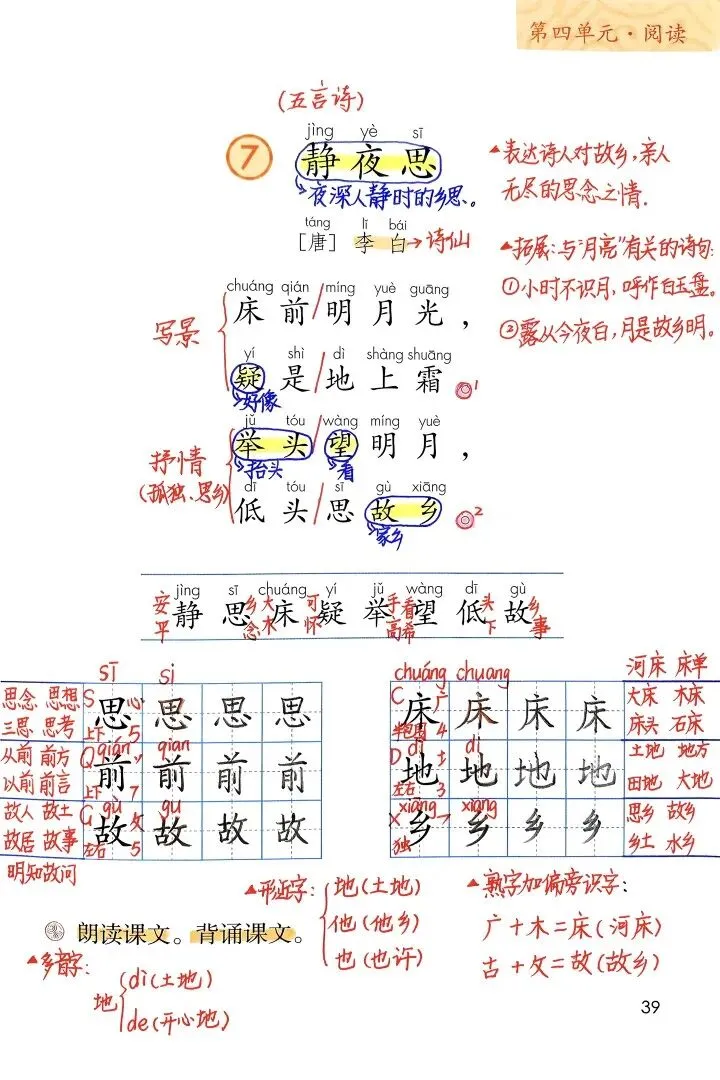 第四单元·阅读
(五言诗)
jìng yè sī
7 静夜思
夜深人静时的乡思。
táng lǐ bái
[唐] 李白→诗仙
▲表达诗人对故乡,亲人
无尽的思念之情.
▲拓展:与"月亮"有关的诗句:
①小时不识月,呼作白玉盘。
②露从今夜白,月是故乡明.
写景
chuáng qián míng yuè guāng
床前/明月光,
yí shì dì shàng shuāng
疑是/地上霜。1
好像
抒情
(孤独、思乡)
jǔ tóu wàng míng yuè
举头/望明月,
抬头 看
dī tóu sī gù xiāng
低头/思故乡。2
家乡
jìng sī chuáng yí jǔ wàng dī gù
静思床疑举望低故
安 乡 大 可 手 看 头 乡
平 念 木 怀 高 希 下 事
sī si
思念 思想 S 心 思思思思
三思 思考 上下 5
从前 前方 Q qián qian 前前前前
以前 前言 上下 7
故人 故土 G gù gu 攵 故故故故
故居 故事 左右 5
明知故问
chuáng chuang 河床 床单
C 广 床床床床 大床 木床
半包围 4 床头 石床
D dì di 土 地地地地 土地 地方
左右 3 田地 大地
X xiāng xiang 乡乡乡乡 思乡 故乡
独 乡土 水乡
▲形近字: 地(土地)
他(他乡)
也(也许)
▲熟字加偏旁识字:
广+木=床(河床)
古+攵=故(故乡)
朗读课文。背诵课文。
▲多音字:
地 dì(土地)
de(开心地)
39